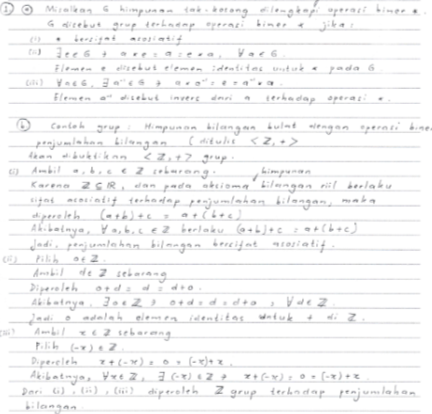 ① ⓐ Misalkan G himpunan tak-kosong dilengkapi operasi biner *.
G disebut grup terhadap operasi biner * jika:
(i) * bersifat asosiatif
(ii) ∃ e ∈ G ∋ a * e = a = e * a, ∀ a ∈ G.
Elemen e disebut elemen identitas untuk * pada G
(iii) ∀ a ∈ G, ∃ a⁻¹ ∈ G ∋ a * a⁻¹ = e = a⁻¹ * a.
Elemen a⁻¹ disebut invers dari a terhadap operasi *.
ⓑ Contoh grup: Himpunan bilangan bulat dengan operasi biner
penjumlahan bilangan (ditulis <ℤ, +>
Akan dibuktikan <ℤ, +> grup.
(i) Ambil a, b, c ∈ ℤ sebarang. himpunan
Karena ℤ ⊆ ℝ, dan pada aksioma bilangan riil berlaku
sifat asosiatif terhadap penjumlahan bilangan, maka
diperoleh (a+b)+c = a+(b+c)
Akibatnya, ∀ a,b,c ∈ ℤ berlaku (a+b)+c = a+(b+c)
Jadi, penjumlahan bilangan bersifat asosiatif.
(ii) Pilih 0 ∈ ℤ.
Ambil d ∈ ℤ sebarang
Diperoleh 0+d = d = d+0.
Akibatnya, ∃ 0 ∈ ℤ ∋ 0+d = d = d+0, ∀ d ∈ ℤ.
Jadi 0 adalah elemen identitas untuk + di ℤ.
(iii) Ambil x ∈ ℤ sebarang
Pilih (-x) ∈ ℤ.
Diperoleh x+(-x) = 0 = (-x)+x.
Akibatnya, ∀ x ∈ ℤ, ∃ (-x) ∈ ℤ ∋ x+(-x) = 0 = (-x)+x
Dari (i), (ii), (iii) diperoleh ℤ grup terhadap penjumlahan
bilangan